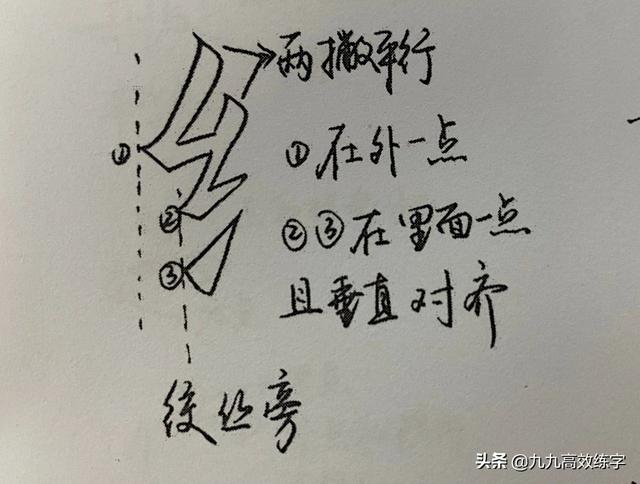 两撇平行
①
①在外一点
②
②③在里面一点
③
且垂直对齐
绞丝旁
头条@九九高效练字